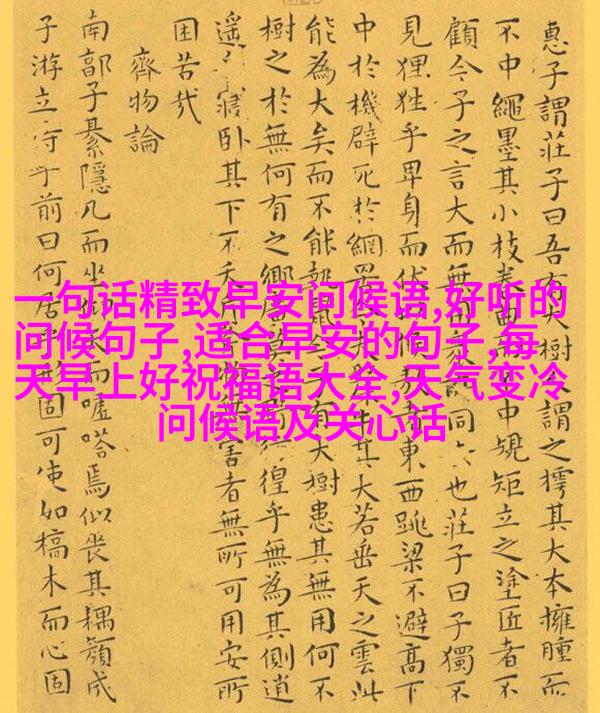 一句话精致早安问候语,好听的
问候句子,适合早安的句子,每一
天早上好祝福语大全,天气变冷
问候语及关心话
惠子謂莊子曰吾有大樹謂之樗其大本擁腫而
不中繩墨其小枝卷曲而不中規矩立之塗匠者不
顧今子之言大而無用同也莊子曰子獨不
見狸狌乎卑身而伏候敖者東西跳梁不避高下
中於機辟死於網罟夫牛其大若垂天之雲此
能為大矣而不能執鼠今子有大樹患其無用何不
樹之於無何有之鄉廣莫之徨乎無為其側逍
遙寢臥其下不夭斤害者無所可用安所
困苦哉
齊物論
南郭子綦隱几而坐仰天而噓嗒焉似喪其耦顏成
子游立侍乎前曰何居乎形固可使如槁木而心固